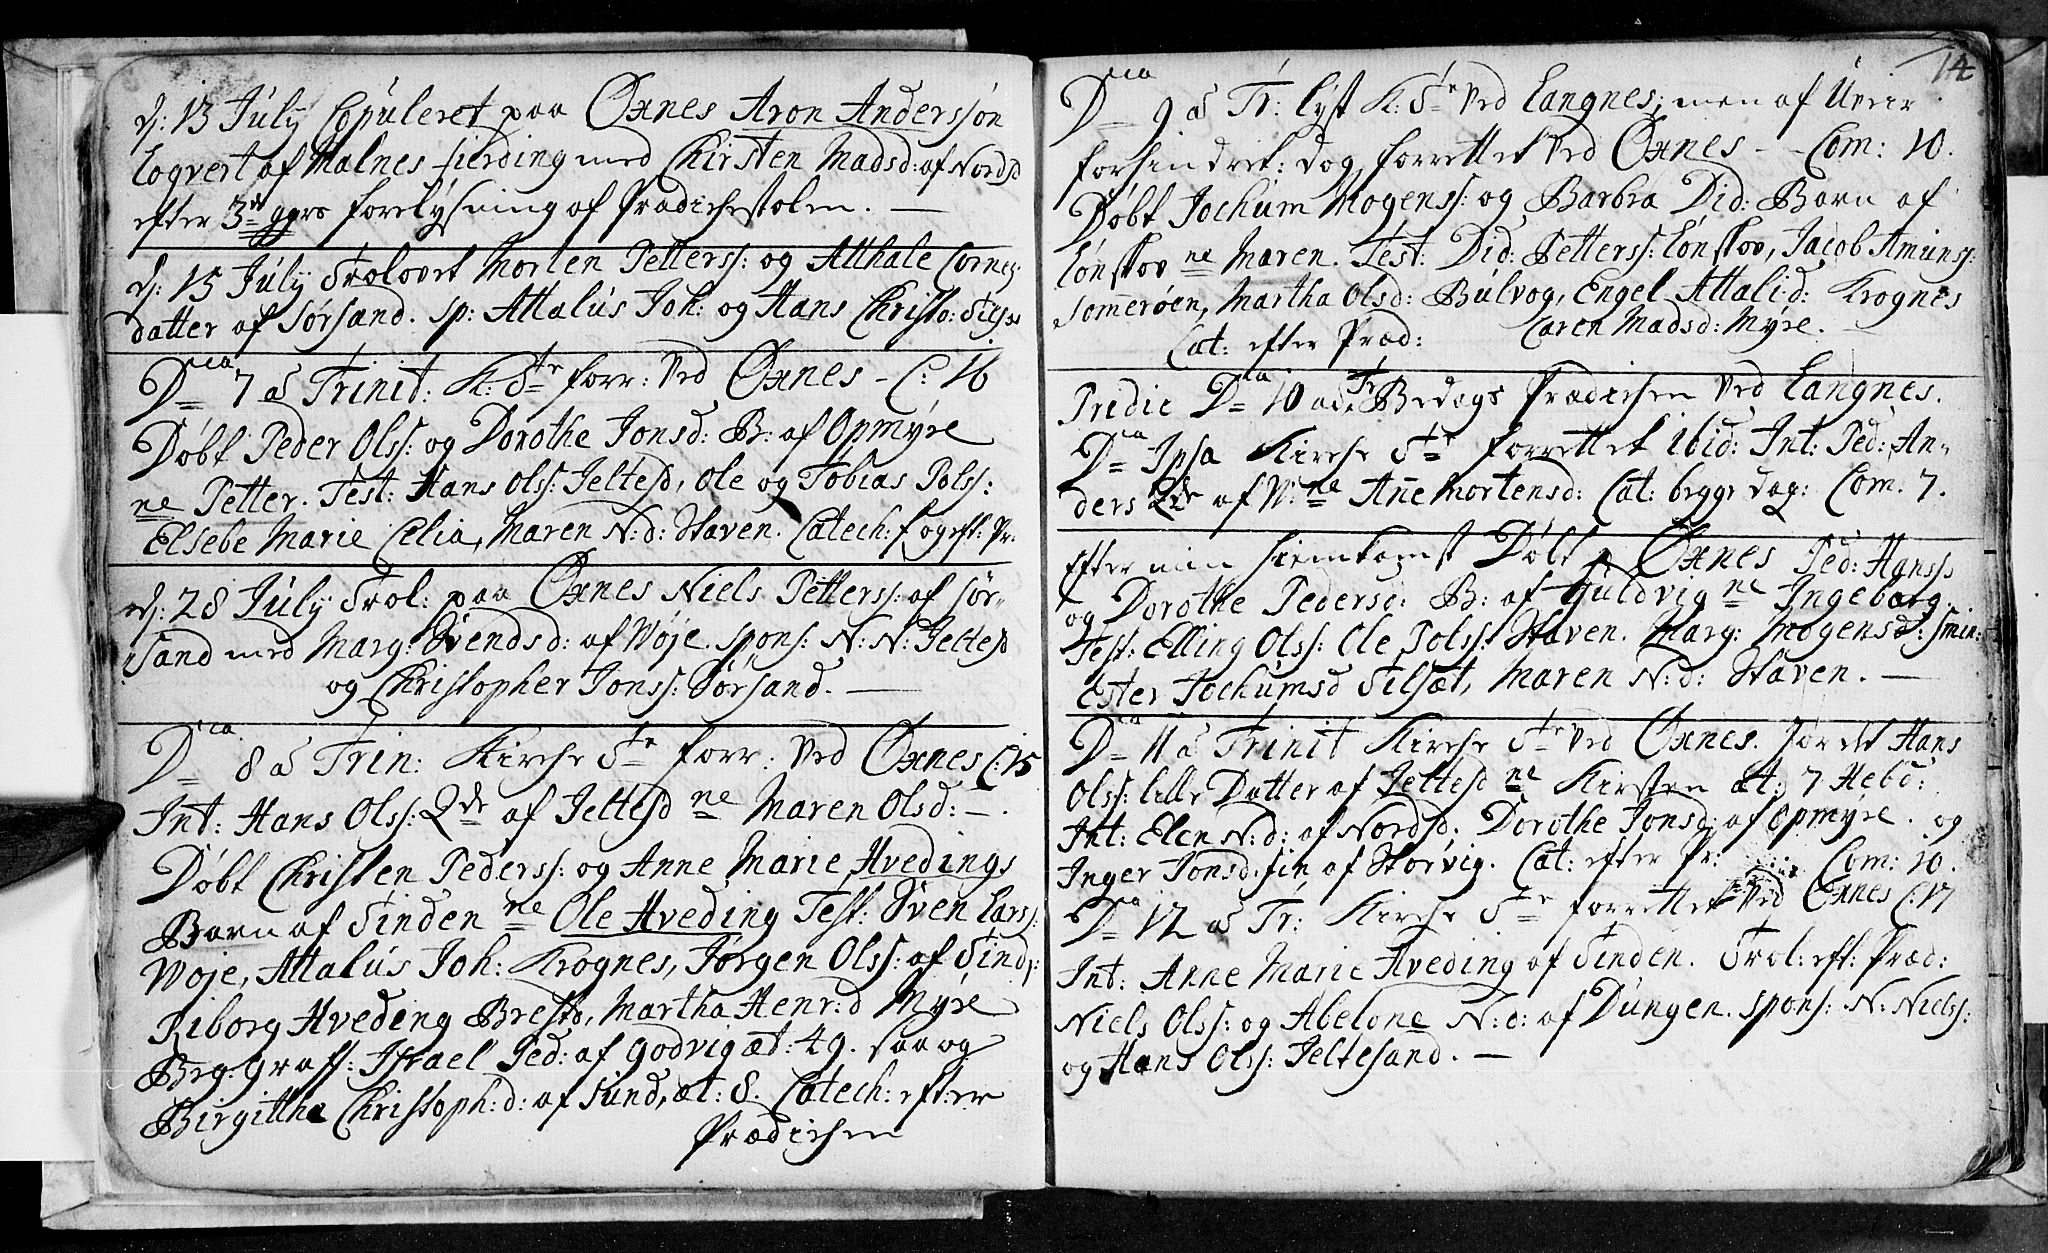 d: 13 July Copuleret paa Øxnes Aron Anderssøn
Logvert af Malnes fierding med Chirsten Madsd: af Nordsd
efter 3de ggrs forelysning af Prædichestolen. —
d: 15 July Trolovet Morten Petterss: og Atthale Cornel:
datter af Sørsand. sp: Attalus Joh: og Hans Christo: Tils
Dca 7 a Trinit: K: Tte forr: ved Øxnes – C: 16
Døbt Peder Olss: og Dorothe Jonsd: B: af Opmyre
ne Petter. Test: Hans Olss: Jeltesd, Ole og Tobias Polss:
Elsebe Marie Celia, Maren N:d: Staven. Catech: f. og eft: Pr:
d: 28 July Trol: paa Øxnes Niels Petterss: af Sør-
sand med Marg: Svendsd: af Woje. spons: N: N: Jeltesd
og Christopher Jonss: Sørsand. —
Dca 8 a Trin: Kirche Tte forr: ved Øxnes C: 15
Int: Hans Olss: Qde af Jeltesd ne Maren Olsd: —.
Døbt Christen Pederss: og Anne Marie Hvedings
Barn af Tinden ne Ole Hveding Test: Sven Larss:
Woje, Attalus Joh: Krognes, Jørgen Olss: af Tind:
Riborg Hveding Brestd, Martha Henr:d Myre
Beg: Graff: Israel Ped: af Godvig æt: 49. saa og
Birgitthe Christoph:d: af Sund, æt: 8. Catech: efter
Prædichen
14
Dca 9 a Tr: lyst K: Tte ved Langnes, men af Uveir
forhindret: dog forrettet ved Øxnes - - Com: 10.
Døbt Jochum Mogenss: og Barbra Did: Barn af
Lonskov ne Maren. Test: Did: Petterss: Lonskov, Jacob Amunss:
Somerøen, Martha Olsd: Bulvog, Engel Attali:d: Krognes
Cat: efter Præd: Caren Madsd: Myre.
Pridie Dca 10 a Tr: Bedags Prædichen ved Langnes.
Dca Ipsa Kirche Tte forrettet ibid: Int: Ped: An-
ders Qde af N: ne Añe Mortensd: Cat: begge dag: Com: 7.
Efter min Hiemkomst Døbt p. Øxnes Ped: Hanss:
og Dorothe Pedersd: B: af Guldvig ne Ingeborg.
Test: Elling Olss: Ole Polss: Staven. Marg: Mogensd: Smin:
Ester Jochumsd Tilsæt, Maren N:d: Staven. —
Dca 11 a Trinit Kirche Tte ved Øxnes. Jordet Hans
Olss: lille Datter af Jeltesd ne Kirsten æt: 7 Hebd:
Int: Elen N:d: af Nordsd. Dorothe Jonsd: af Opmyre. og
Inger Jonsd: fin af Storvig. Cat: efter Pr: Com: 10.
Dca 12 a Tr: Kirche Tte forrettet ved Øxnes C: 17
Int: Anne Marie Hveding af Tinden. Trol: eft: Præd:
Niels Olss: og Abelone N:d: af Dungen. spons: N: Nielss:
og Hans Olss: Jeltesand. —